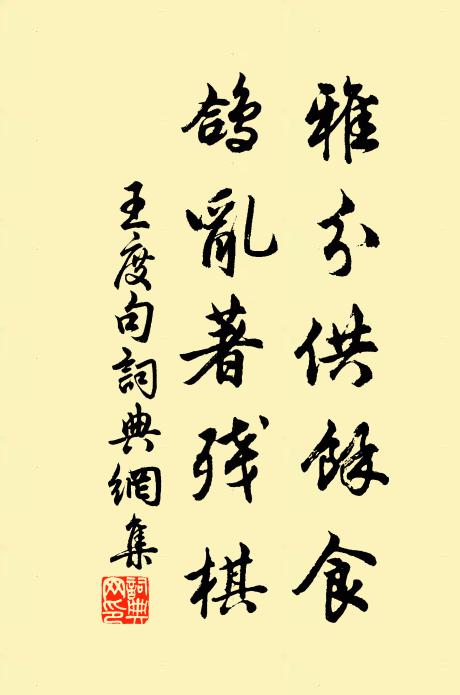 雅分供餘食
鴿亂著殘棋
王度句詞典網集
詞典網印